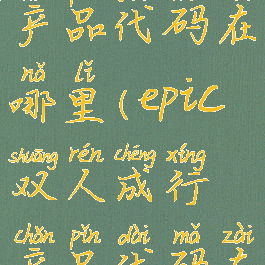 产品代码在
nǎ lǐ
哪里(epic
shuāng rén chéng xíng
双人成行
chǎn pǐn dài mǎ zài
产品代码在